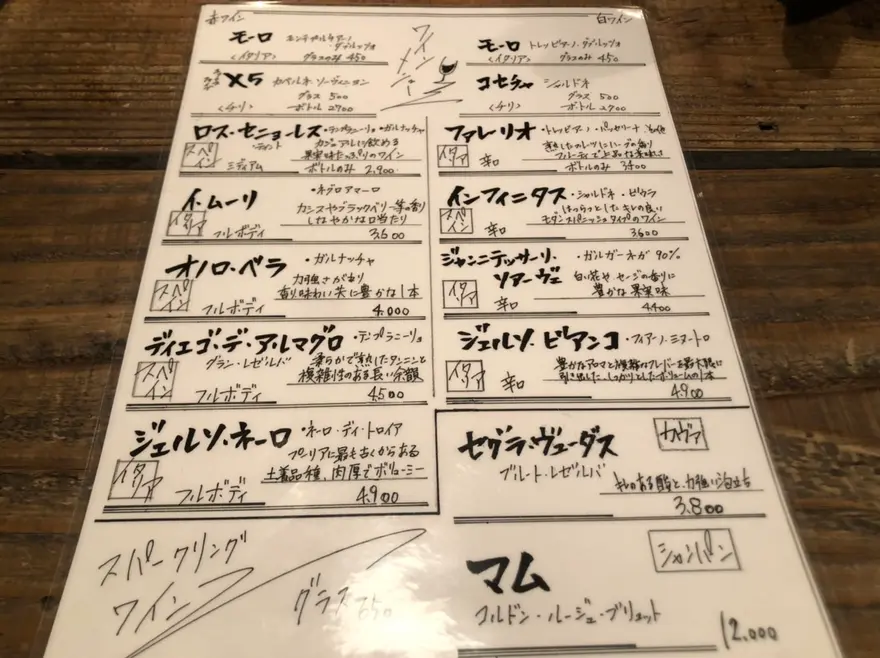 赤ワイン
モーロ モンテプルチアーノ・ダブルッツォ
<イタリア> グラスのみ 450
X5 カベルネ ソーヴィニヨン
グラス 500
<チリ> ボトル 2700
ロス・セニョーレス ・テンプラニーリョ・ガルナッチャ
・ティント
カジュアルに飲める
果実味たっぷりのワイン
スペイン ミディアム ボトルのみ 2,900
イ・ムーリ ・ネグロアマーロ
カシスやブラックベリー等の香り
しなやかな口当たり
イタリア フルボディ 3,600
オノロ・ベラ ・ガルナッチャ
力強さがあり
香り味わい共に豊かな1本
スペイン フルボディ 4,000
ディエゴ・デ・アルマグロ ・テンプラニーリョ
グラン・レゼルバ
柔らかで熟したタンニンと
複雑性のある長い余韻
スペイン フルボディ 4,500
ジェルソ・ネーロ ・ネーロ・ディ・トロイア
プーリアに最も古くからある
土着品種、肉厚でボリューミー
イタリア フルボディ 4,900
ワインメニュー
白ワイン
モーロ トレッビアーノ・ダブルッツォ
<イタリア> グラスのみ 450
コセチャ シャルドネ
グラス 500
<チリ> ボトル 2700
ファレリオ ・トレッビアーノ・パッセリーナ
フルーティで上品な
イタリア 辛口 ボトルのみ 3400
インフィニタス ・シャルドネ・ビウラ
はつらつとしたキレの良い
モダンスパニッシュタイプのワイン
スペイン 辛口 3,600
ジャンニテッサーリ・ソアーヴェ ・ガルガーネガ 90%
白い花や、セージの香りに
豊かな果実味
イタリア 辛口 4,400
ジェルソ・ビアンコ ・フィアーノ・ミヌートロ
豊かなアロマと複雑なフレーバーを最大限に
引き出した、しっかりとしたボリュームの1本
イタリア 辛口 4,900
セグラ・ヴューダス カヴァ
ブルート・レゼルバ
キレのある酸と、力強い泡立ち
3,800
スパークリング
ワイン
グラス 650
マム シャンパン
コルドン・ルージュ・ブリュット
12,000